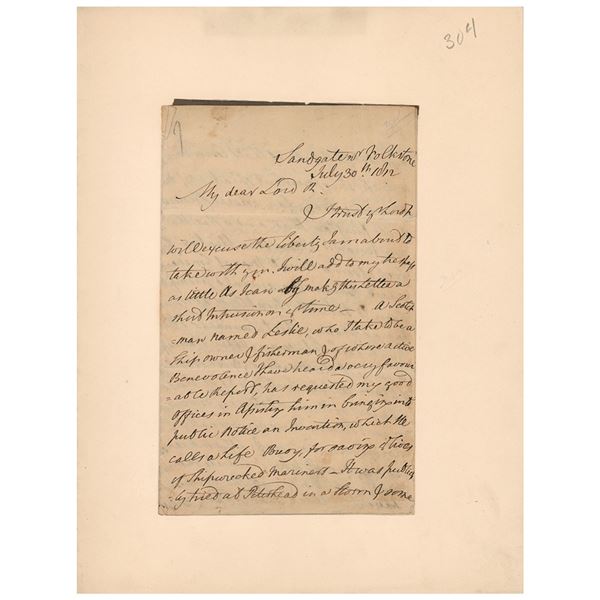 304
Sandgate nr Folkstone
July 30th 1812
My dear Lord R.
I trust yr Lordp
will excuse the liberty I am about to
take with you. I will add to my
as little as I can by makg this Letter a
short Intrusion on yr time — A Scotch
-man named Leslie, who I take to be a
Ship owner & fisherman & of whose active
Benevolence I have heard a very favour
-able Report, has requested my good
offices in Assistg him in bringing into
public Notice an Invention, which He
calls a Life Buoy, for saving ye lives
of Shipwrecked Mariners — It was public
-ly tried at Peterhead in a Storm & some